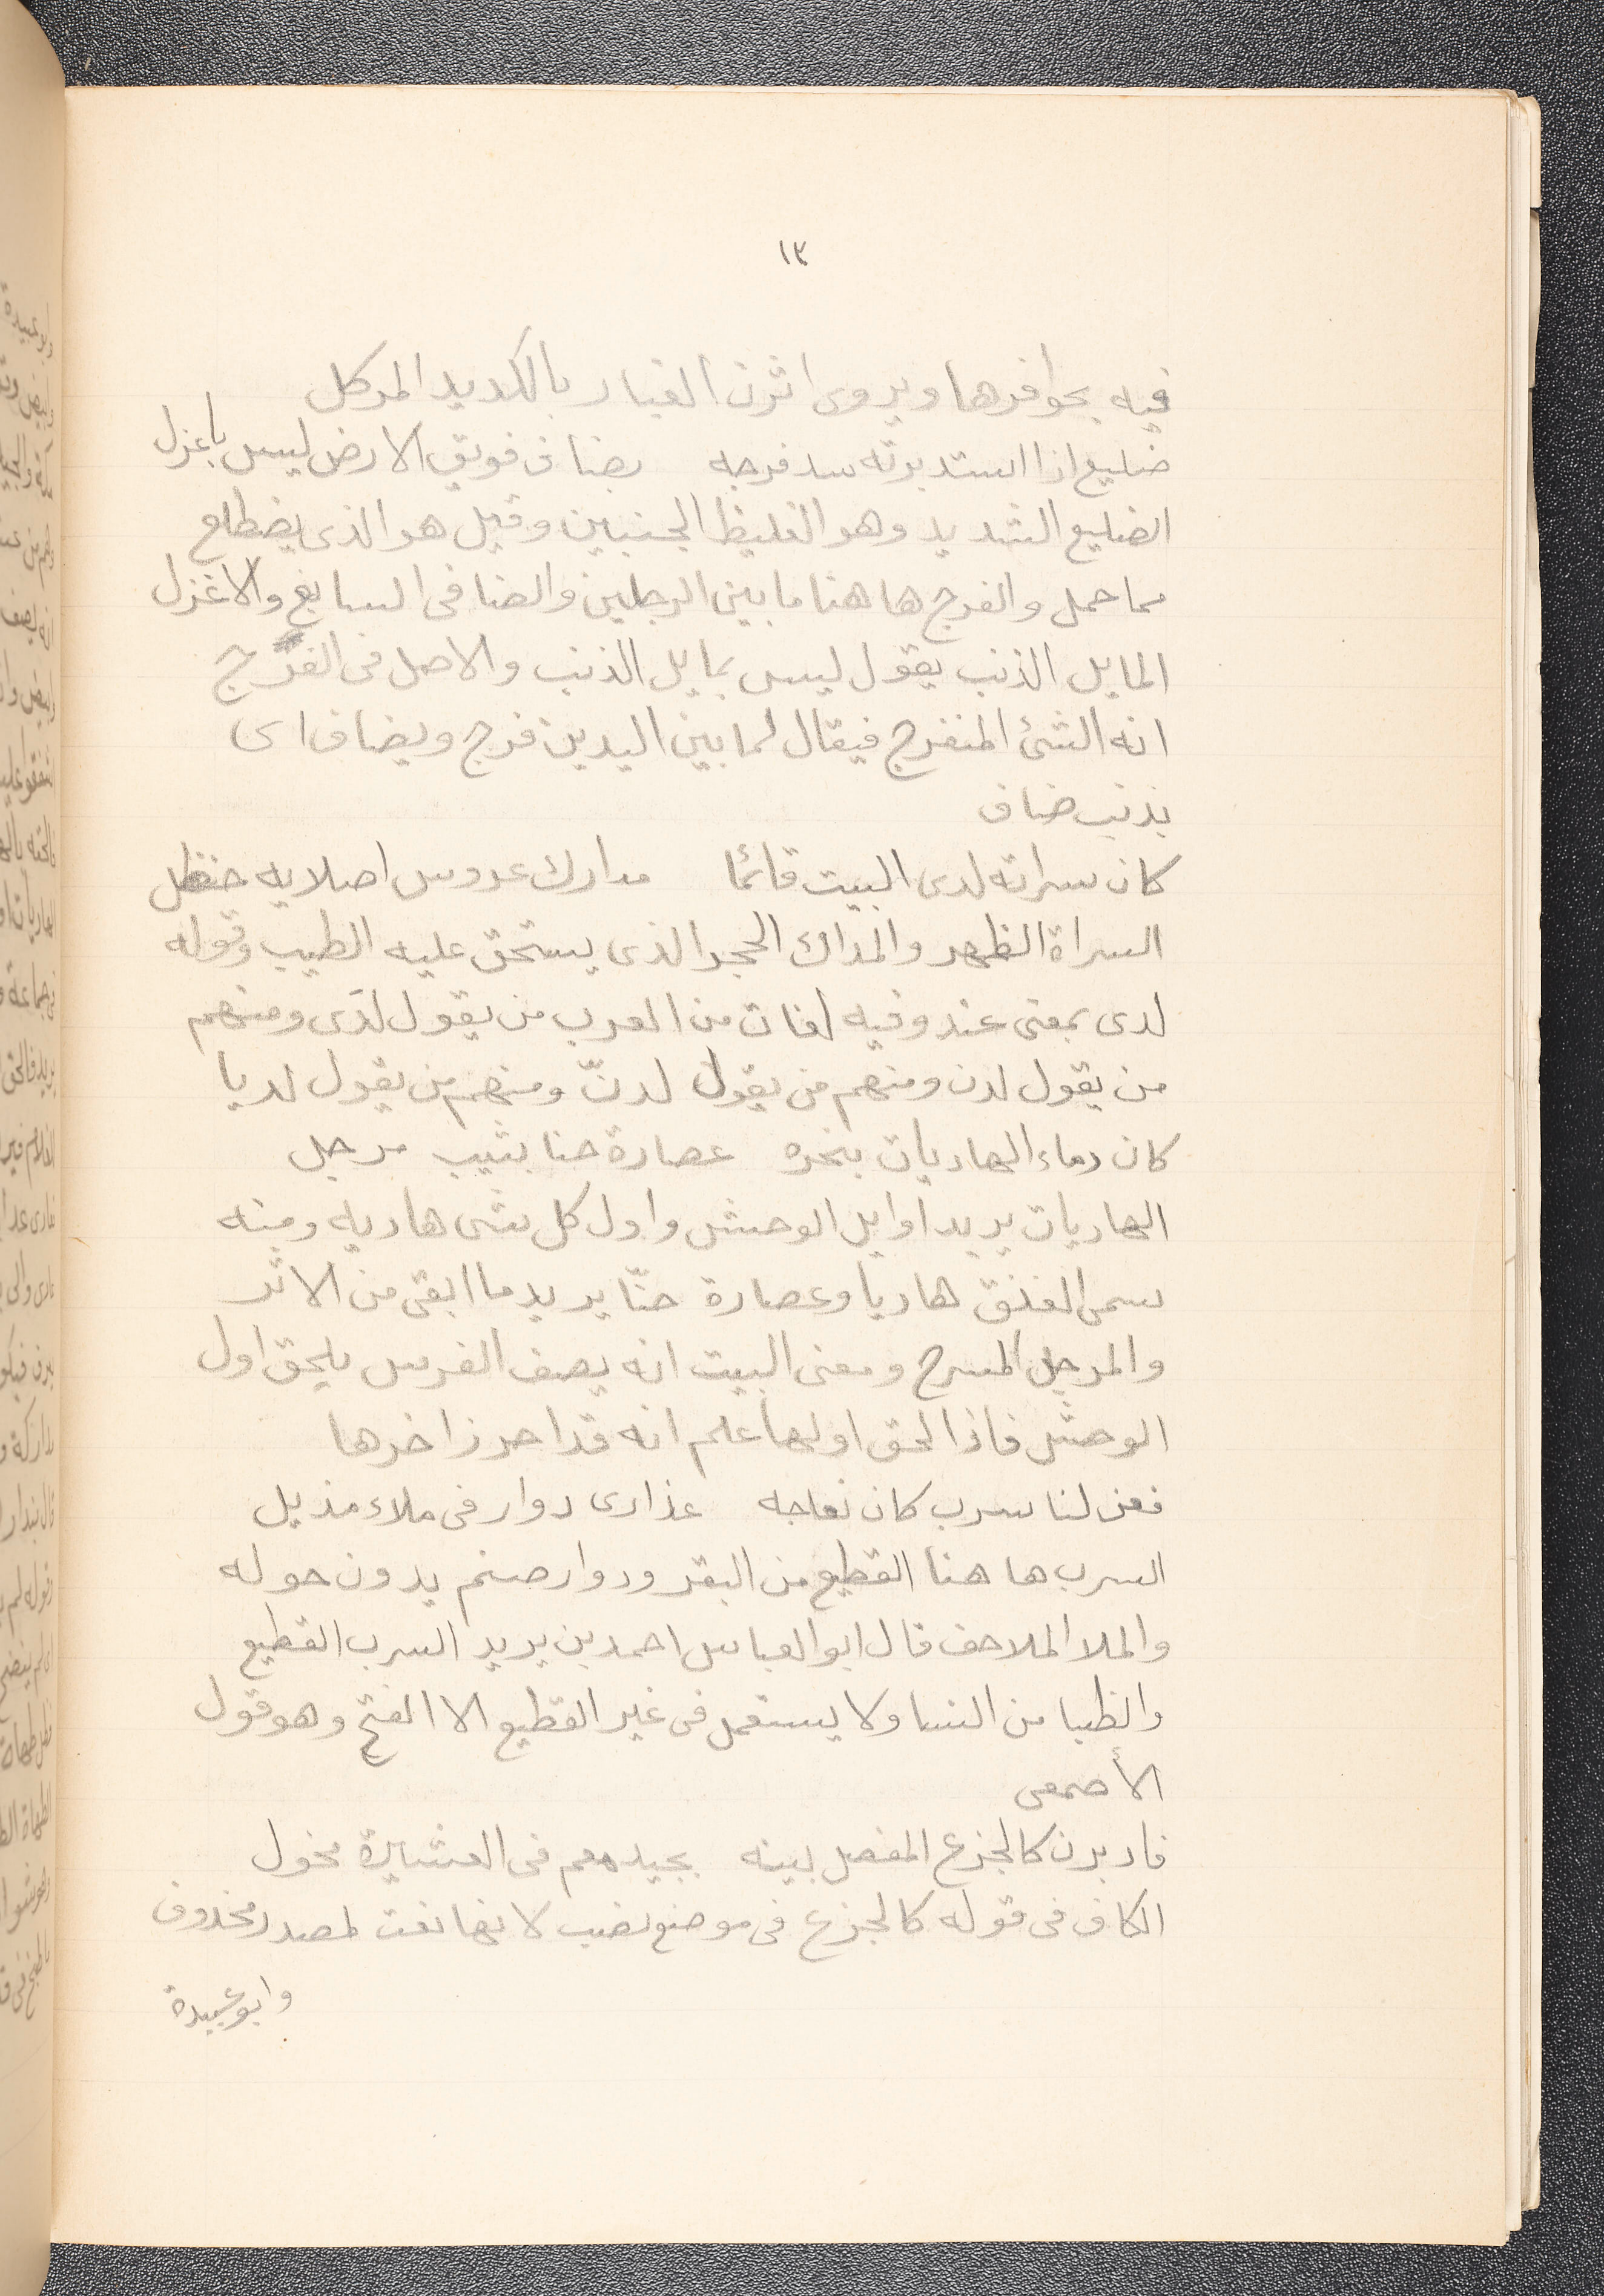 ١٣
فيه بحوافرها ويروى اثرن الغبار بالكديد المركل
ضليع اذا استدبرته سد فرجه بضاف فويق الارض ليس باعزل
الضليع الشديد وهو الغليظ الجنبين وقيل هو الذى يضطلع
مما حمل والفرج ها هنا ما بين الرجلين والضافى السابغ والاغزل
المايل الذنب يقول ليس بمايل الذنب والاصل فى الفرج
انه الشئ المنفرج فيقال لما بين اليدين فرج وبضاف اى
بذنب ضاف
كان سراته لدى البيت قائما مداك عروس اصلايه حنظل
السراة الظهر والمداك الحجر الذى يستحق عليه الطيب وقوله
لدى بمعنى عند وفيه لغات من العرب من يقول لدى ومنهم
من يقول لدن ومنهم من يقول لدنّ ومنهم من يقول لديا
كان دماء الهاديات بنحره عصارة حنا بشيب مرجل
الهاديات يريد اوايل الوحش واول كل شى هاديه ومنه
سمى العنق هاديا وعصارة حنّا يريد ما ابقى من الاثر
والمرجل المسرح ومعنى البيت انه يصف الفرس يلحق اول
الوحش فاذا لحق اولها علم انه قد احرز اخرها
فعن لنا سرب كان نعاجه عذارى دوار فى ملاء مذيل
السرب ها هنا القطيع من البقر ودوار صنم يدون حوله
والملا الملاحف قال ابو العباس احمد بن يريد السرب القطيع
والظبا من النسا ولا يستعمل فى غير القطيع الا الفتح وهو قول
الأصمعى
فادبرن كالجزع المفصل بينه بجيد معم فى العشيرة مخول
الكاف فى قوله كالجزع فى موضع نصب لانها نعت لمصدر محذوف
وابو عبيدة